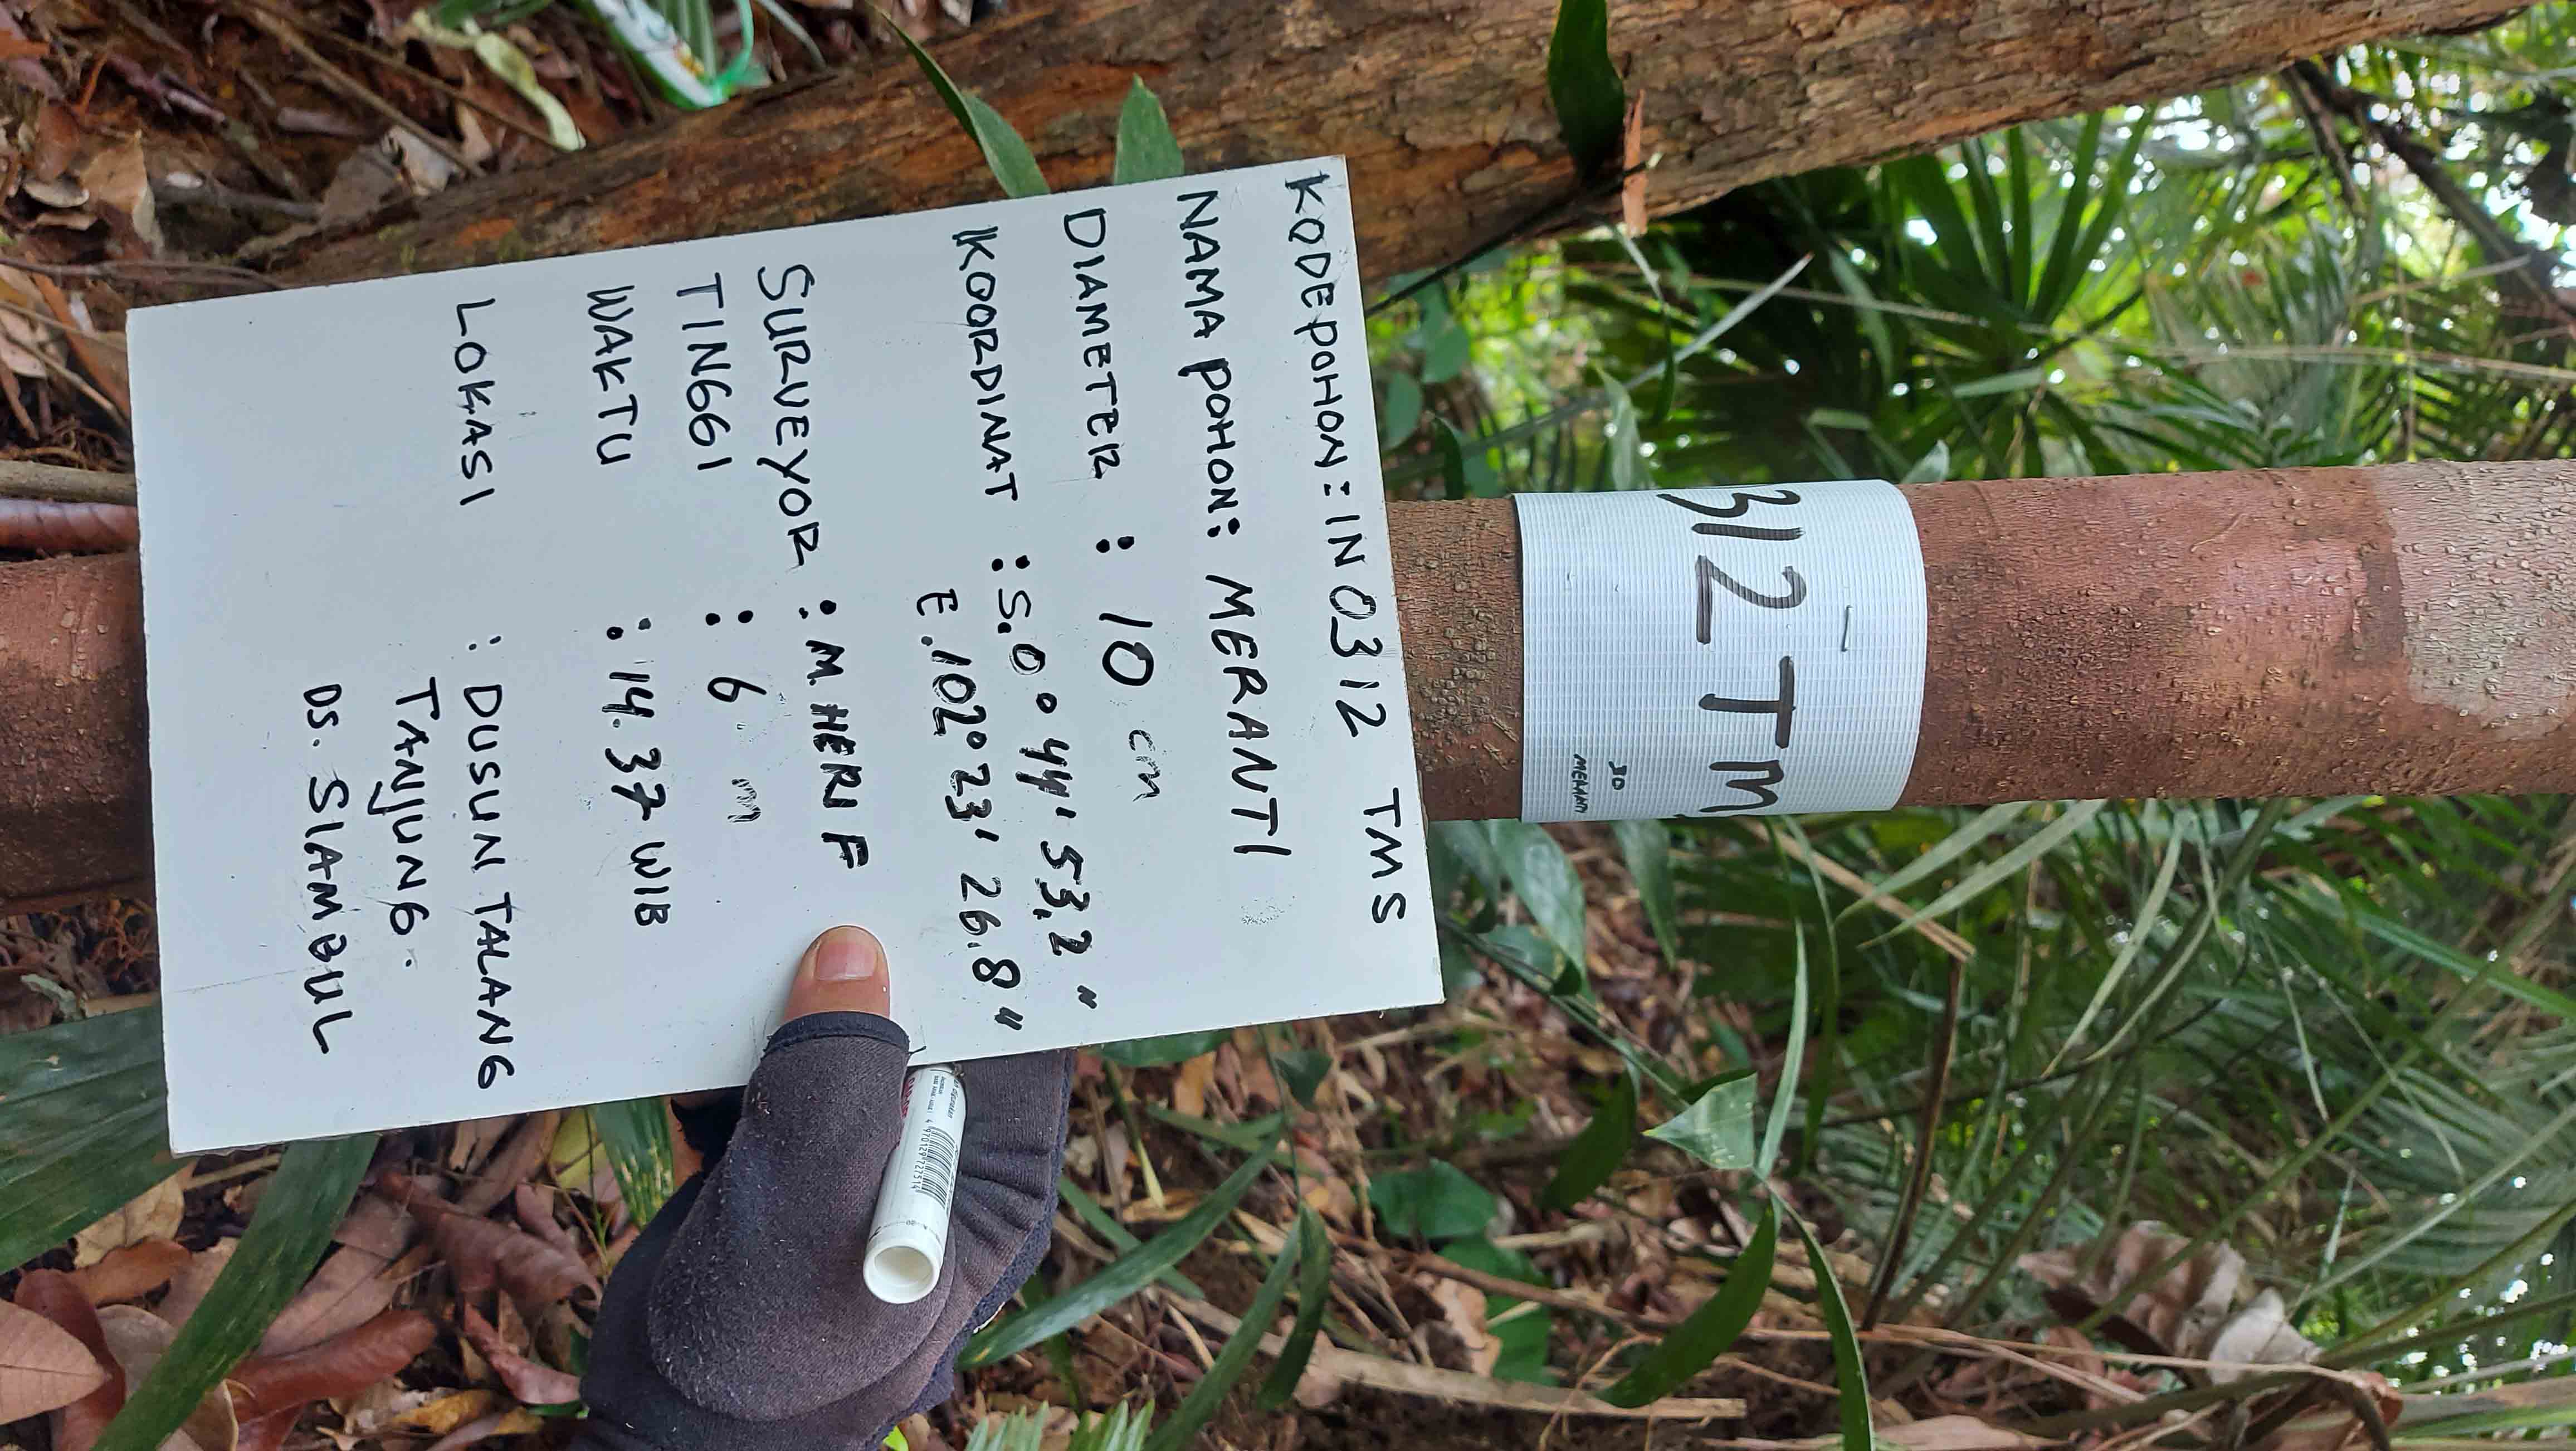 KODE POHON : IN 0312 TMS
NAMA POHON : MERANTI
DIAMETER : 10 cm
KOORDINAT : S.0° 44' 53,2"
E.102° 23' 26.8"
SURVEYOR : M HERI F
TINGGI : 6 m
WAKTU : 14.37 WIB
LOKASI : DUSUN TALANG
TANJUNG.
DS. SIAMBUL
312 TM
30
MERANTI
4970129727514